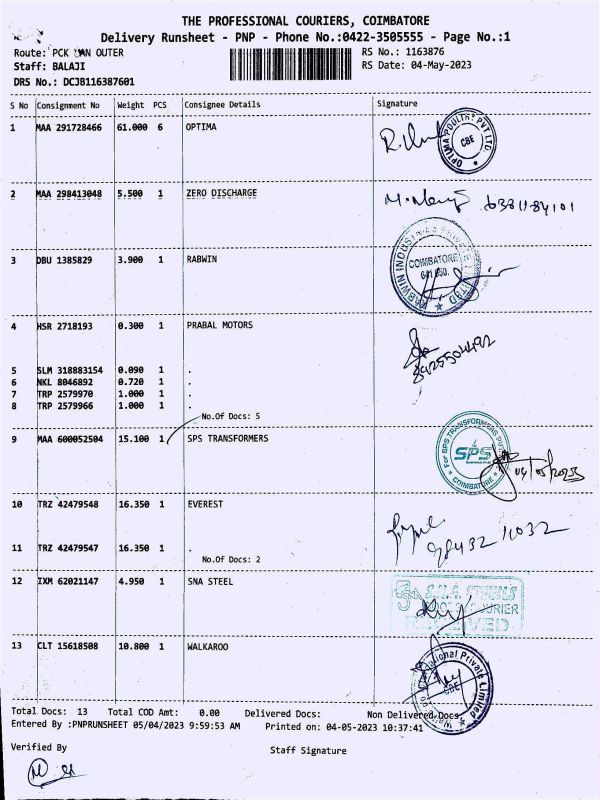 THE PROFESSIONAL COURIERS, COIMBATORE
Delivery Runsheet - PNP - Phone No.:0422-3505555 - Page No.:1
Route: PCK VAN OUTER
RS No.: 1163876
Staff: BALAJI
RS Date: 04-May-2023
DRS No.: DCJB116387601
S No Consignment No Weight PCS Consignee Details Signature
1 MAA 291728466 61.000 6 OPTIMA
OPTIMA POULTRY PVT LTD.
CBE
2 MAA 298413048 5.500 1 ZERO DISCHARGE
6381184101
3 DBU 1385829 3.900 1 RABWIN
RABWIN INDUSTRIES PRIVATE LIMITED
COIMBATORE
4 HSR 2718193 0.300 1 PRABAL MOTORS
5 SLM 318883154 0.090 1 .
6 NKL 8046892 0.720 1 .
7 TRP 2579970 1.000 1 .
8 TRP 2579966 1.000 1 .
No.Of Docs: 5
9 MAA 600052504 15.100 1 SPS TRANSFORMERS
For SPS TRANSFORMERS PVT
SPS
COIMBATORE
04/05/2023
10 TRZ 42479548 16.350 1 EVEREST
98432 11032
11 TRZ 42479547 16.350 1 .
No.Of Docs: 2
12 IXM 62021147 4.950 1 SNA STEEL
S.N.A. STEELS
COURIER
RECEIVED
13 CLT 15618508 10.800 1 WALKAROO
International Private Limited
CBE
Total Docs: 13 Total COD Amt: 0.00 Delivered Docs: Non Delivered Docs:
Entered By :PNPRUNSHEET 05/04/2023 9:59:53 AM Printed on: 04-05-2023 10:37:41
Verified By
Staff Signature